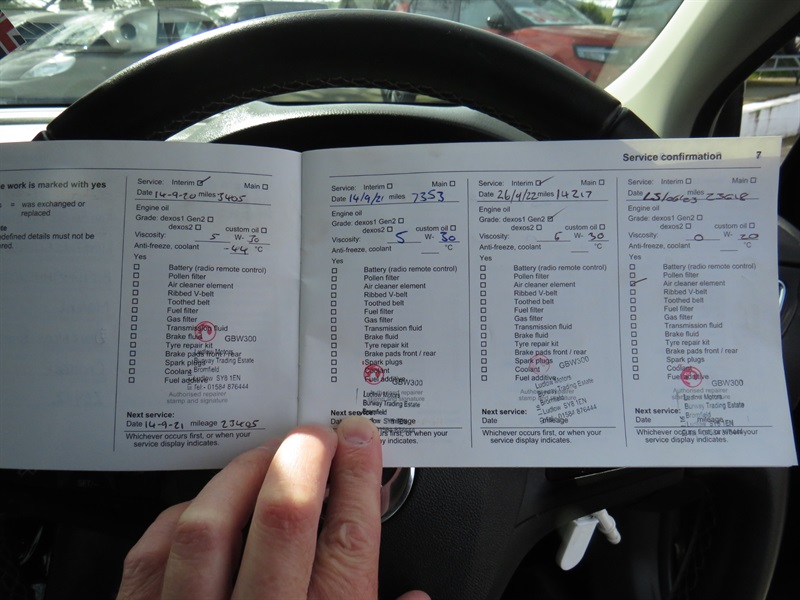 Service confirmation 7
e work is marked with yes
= was exchanged or
replaced
defined details must not be
Service: Interim Main
Date 14-9-20 miles 3405
Engine oil
Grade: dexos1 Gen2
dexos2 custom oil
Viscosity: 5 W- 30
Anti-freeze, coolant -44 °C
Yes
Battery (radio remote control)
Pollen filter
Air cleaner element
Ribbed V-belt
Toothed belt
Fuel filter
Gas filter
Transmission fluid
Brake fluid
Tyre repair kit
Brake pads front / rear
Spark plugs
Coolant
Fuel additive
GBW300
Ludlow Motors
Burway Trading Estate
Bromfield
Ludlow SY8 1EN
Tel - 01584 876444
Authorised repairer
stamp and signature
Next service:
Date 14-9-21 mileage 23405
Whichever occurs first, or when your
service display indicates.
Service: Interim Main
Date 14/9/21 miles 7353
Engine oil
Grade: dexos1 Gen2
dexos2 custom oil
Viscosity: 5 W- 30
Anti-freeze, coolant °C
Yes
Battery (radio remote control)
Pollen filter
Air cleaner element
Ribbed V-belt
Toothed belt
Fuel filter
Gas filter
Transmission fluid
Brake fluid
Tyre repair kit
Brake pads front / rear
Spark plugs
Coolant
Fuel additive
GBW300
Authorised repairer
Ludlow Motors
Burway Trading Estate
Next service:
mileage
occurs first, or when your
service display indicates.
Service: Interim Main
Date 26/4/22 miles 14217
Engine oil
Grade: dexos1 Gen2
dexos2 custom oil
Viscosity: W- 30
Anti-freeze, coolant °C
Yes
Battery (radio remote control)
Pollen filter
Air cleaner element
Ribbed V-belt
Toothed belt
Fuel filter
Gas filter
Transmission fluid
Brake fluid
Tyre repair kit
Brake pads front / rear
Spark plugs
Coolant
Fuel additive
GBW300
Authorised repairer
stamp and signature
Ludlow Motors
Burway Trading Estate
Bromfield
Ludlow SY8 1EN
Tel - 01584 876444
Next service:
Date mileage
Whichever occurs first, or when your
service display indicates.
Service: Interim Main
Date miles
Engine oil
Grade: dexos1 Gen2
dexos2 custom oil
Viscosity: 0 W- 20
Anti-freeze, coolant °C
Yes
Battery (radio remote control)
Pollen filter
Air cleaner element
Ribbed V-belt
Toothed belt
Fuel filter
Gas filter
Transmission fluid
Brake fluid
Tyre repair kit
Brake pads front / rear
Spark plugs
Coolant
Fuel additive
GBW300
Authorised repairer
stamp and signature
Ludlow Motors
Burway Trading Estate
Bromfield
Next service:
Date mileage
Whichever occurs first, or when your
service display indicates.